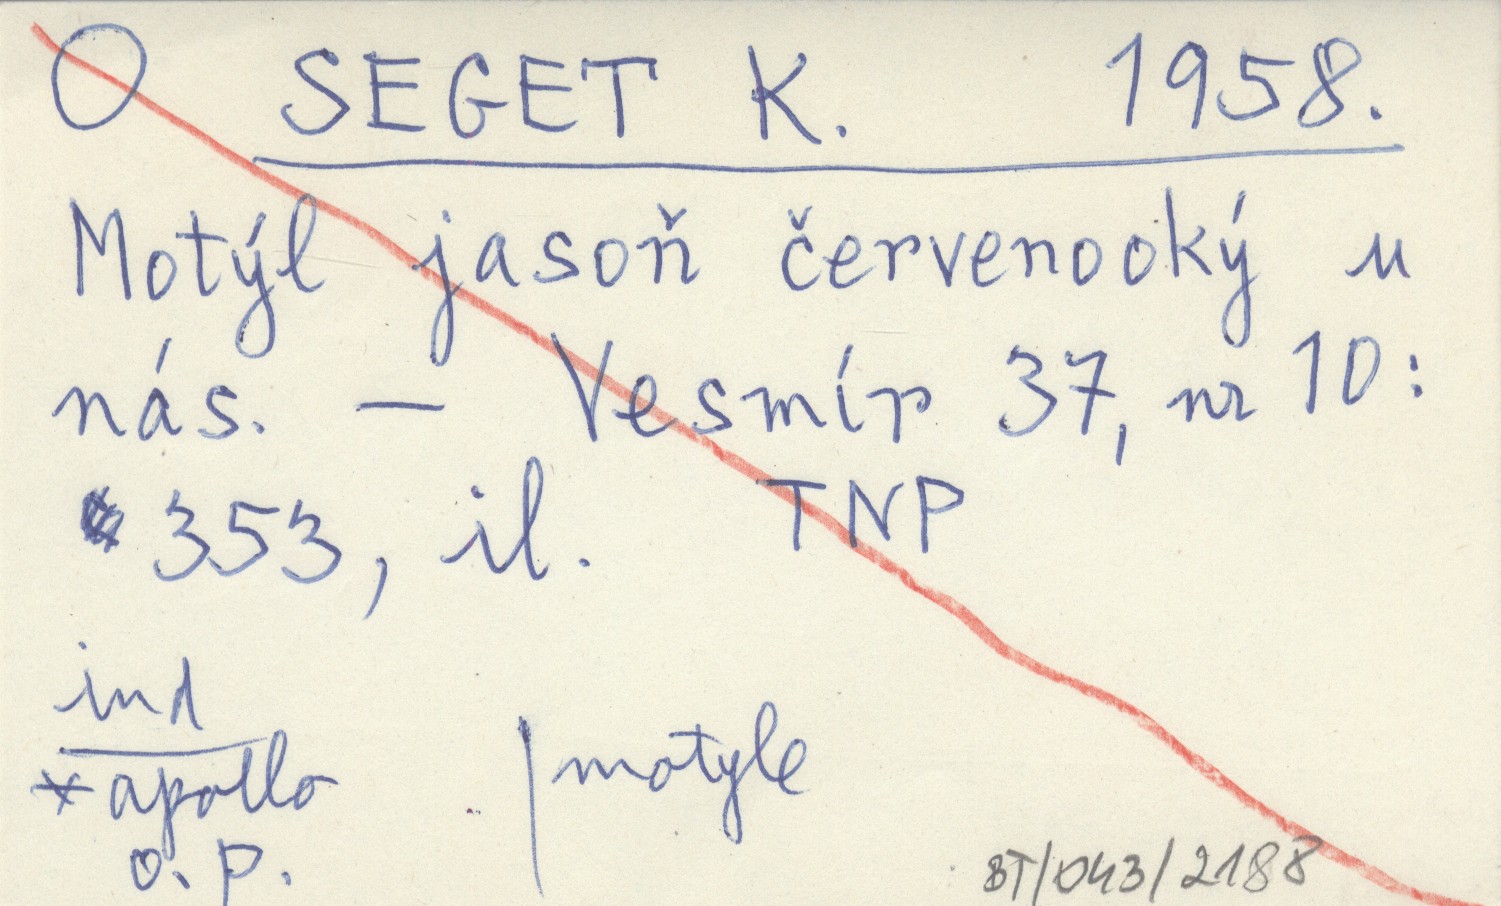 O SEGET K. 1958.
Motýl jasoň červenooký u
nás. — Vesmír 37, nr 10:
353, il. TNP
ind
* apollo | motyle
o.p.
BT/043/2188